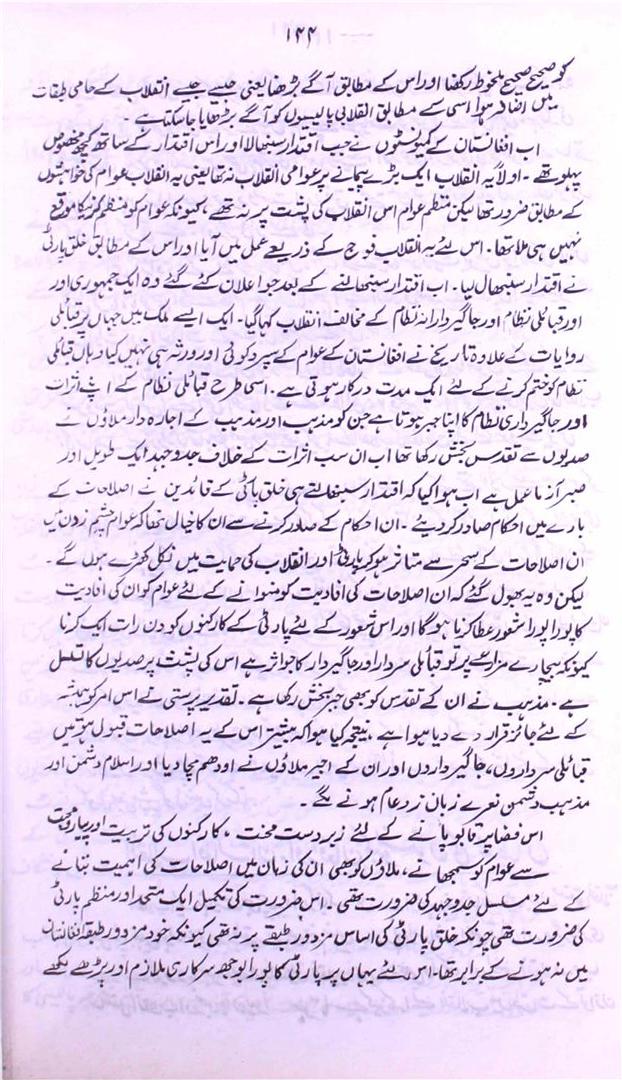 ۱۴۴
کو صحیح صحیح ملحوظ رکھنا اور اس کے مطابق آگے بڑھنا یعنی جیسے جیسے انقلاب کے حامی طبقات
میں اضافہ ہوا اسی کے مطابق انقلابی پالیسیوں کو آگے بڑھایا جا سکتا ہے۔
اب افغانستان کے کمیونسٹوں نے جب اقتدار سنبھالا اور اس اقتدار کے ساتھ کچھ مخصوص
پہلو تھے۔ اولاً یہ انقلاب ایک بڑے پیمانے پر عوامی انقلاب نہ تھا یعنی یہ انقلاب عوام کی خواہشوں
کے مطابق ضرور تھا لیکن منظم عوام اس انقلاب کی پشت پر نہ تھے، کیونکہ عوام کو منظم کرنیکا موقع
نہیں ہی ملا تھا۔ اس لئے یہ انقلاب فوج کے ذریعے عمل میں آیا اور اس کے مطابق خلق پارٹی
نے اقتدار سنبھال لیا۔ اب اقتدار سنبھالنے کے بعد جو اعلان کئے گئے وہ ایک جمہوری اور
اور قبائلی نظام اور جاگیردارانہ نظام کے مخالف انقلاب کہا گیا۔ ایک ایسے ملک میں جہاں پر قبائلی
روایات کے علاوہ تاریخ نے افغانستان کے عوام کے سپرد کوئی اور ورثہ ہی نہیں کیا وہاں قبائلی
نظام کو ختم کرنے کے لئے ایک مدت درکار ہوتی ہے۔ اسی طرح قبائلی نظام کے اپنے اثرات
اور جاگیرداری نظام کا اپنا جبر ہوتا ہے جن کو مذہب اور مذہب کے اجارہ دار ملاؤں نے
صدیوں سے تقدس بخش رکھا تھا اب ان سب اثرات کے خلاف جدوجہد ایک طویل اور
صبر آزما عمل ہے اب ہوا کیا کہ اقتدار سنبھالتے ہی خلق پارٹی کے قائدین نے اصلاحات کے
بارے میں احکام صادر کر دیئے۔ ان احکام کے صادر کرنے سے ان کا خیال تھا کہ عوام چشم زدن میں
ان اصلاحات کے سحر سے متاثر ہو کر پارٹی اور انقلاب کی حمایت میں نکل کھڑے ہوں گے۔
لیکن وہ یہ بھول گئے کہ ان اصلاحات کی افادیت کو منوانے کے لئے عوام کو ان کی افادیت
کا پورا پورا شعور عطا کرنا ہوگا اور اس شعور کے لئے پارٹی کے کارکنوں کو دن رات ایک کرنا
کیونکہ بیچارے مزارعے پر تو قبائلی سردار اور جاگیردار کا جو اثر ہے اس کی پشت پر صدیوں کا تسلسل
ہے۔ مذہب نے ان کے تقدس کو بھی جبر بخش رکھا ہے۔ تقدیر پرستی نے اس امر کو ہمیشہ
کے لئے جائز قرار دے دیا ہوا ہے، نتیجہ کیا ہوا کہ پیشتر اس کے یہ اصلاحات قبول ہوتیں
قبائلی سرداروں، جاگیرداروں اور ان کے اجیر ملاؤں نے اودھم مچا دیا اور اسلام دشمن اور
مذہب دشمن نعرے زبان زد عام ہونے لگے۔
اس فضا پر قابو پانے کے لئے زبردست محنت، کارکنوں کی تربیت اور پیار و محبت
سے عوام کو سمجھانے، ملاؤں کو بھی ان کی زبان میں اصلاحات کی اہمیت بتانے
کے لئے مسلسل جدوجہد کی ضرورت تھی۔ اس ضرورت کی تکمیل ایک متحد اور منظم پارٹی
کی ضرورت تھی چونکہ خلق پارٹی کی اساس مزدور طبقے پر نہ تھی کیونکہ خود مزدور طبقہ افغانستان
میں نہ ہونے کے برابر تھا۔ اس لئے یہاں پر پارٹی کا پورا بوجھ سرکاری ملازم اور پڑھے لکھے